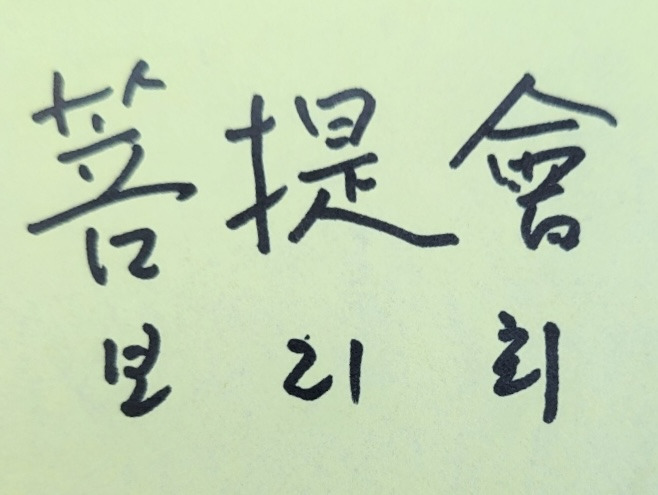 菩提會
보리회